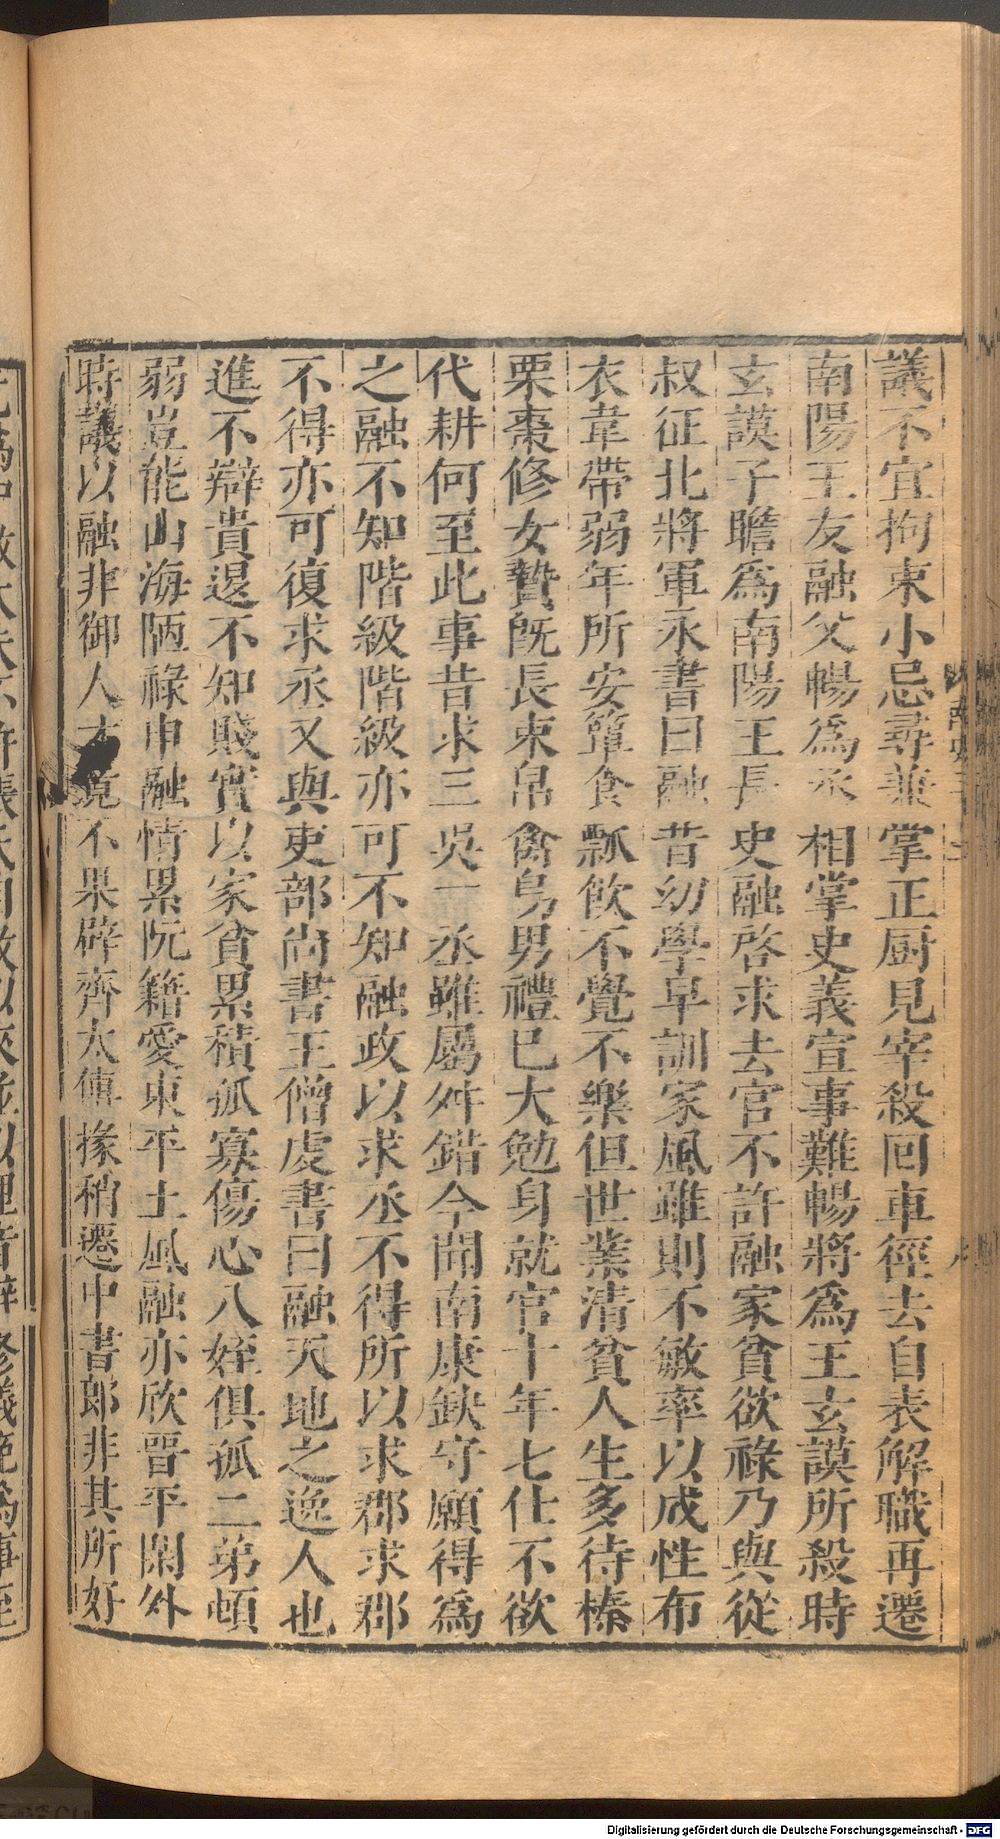 議不宜拘束小忌尋兼掌正厨見宰殺回車徑去自表解職再遷
南陽王友融父暢爲丞相掌史義宣事難暢將爲王玄謨所殺時
玄謨子瞻爲南陽王長史融啓求去官不許融家貧欲祿乃與從
叔征北將軍永書曰融昔幼學早訓家風雖則不敏率以成性布
衣韋帶弱年所安簞食瓢飲不覺不樂但世業清貧人生多待榛
栗棗修女贄旣長束帛禽鳥男禮已大勉身就官十年七仕不欲
代耕何至此事昔求三吳一丞雖屬舛錯今聞南康缺守願得爲
之融不知階級階級亦可不知融政以求丞不得所以求郡求郡
不得亦可復求丞又與吏部尚書王僧虔書曰融天地之逸人也
進不辯貴退不知賤實以家貧累積孤寡傷心八姪俱孤二弟頓
弱豈能山海陋祿申融情累阮籍愛東平土風融亦欣晉平閑外
時議以融非御人才竟不果辟齊太傅掾稍遷中書郎非其所好
Digitalisierung gefördert durch die Deutsche Forschungsgemeinschaft - DFG